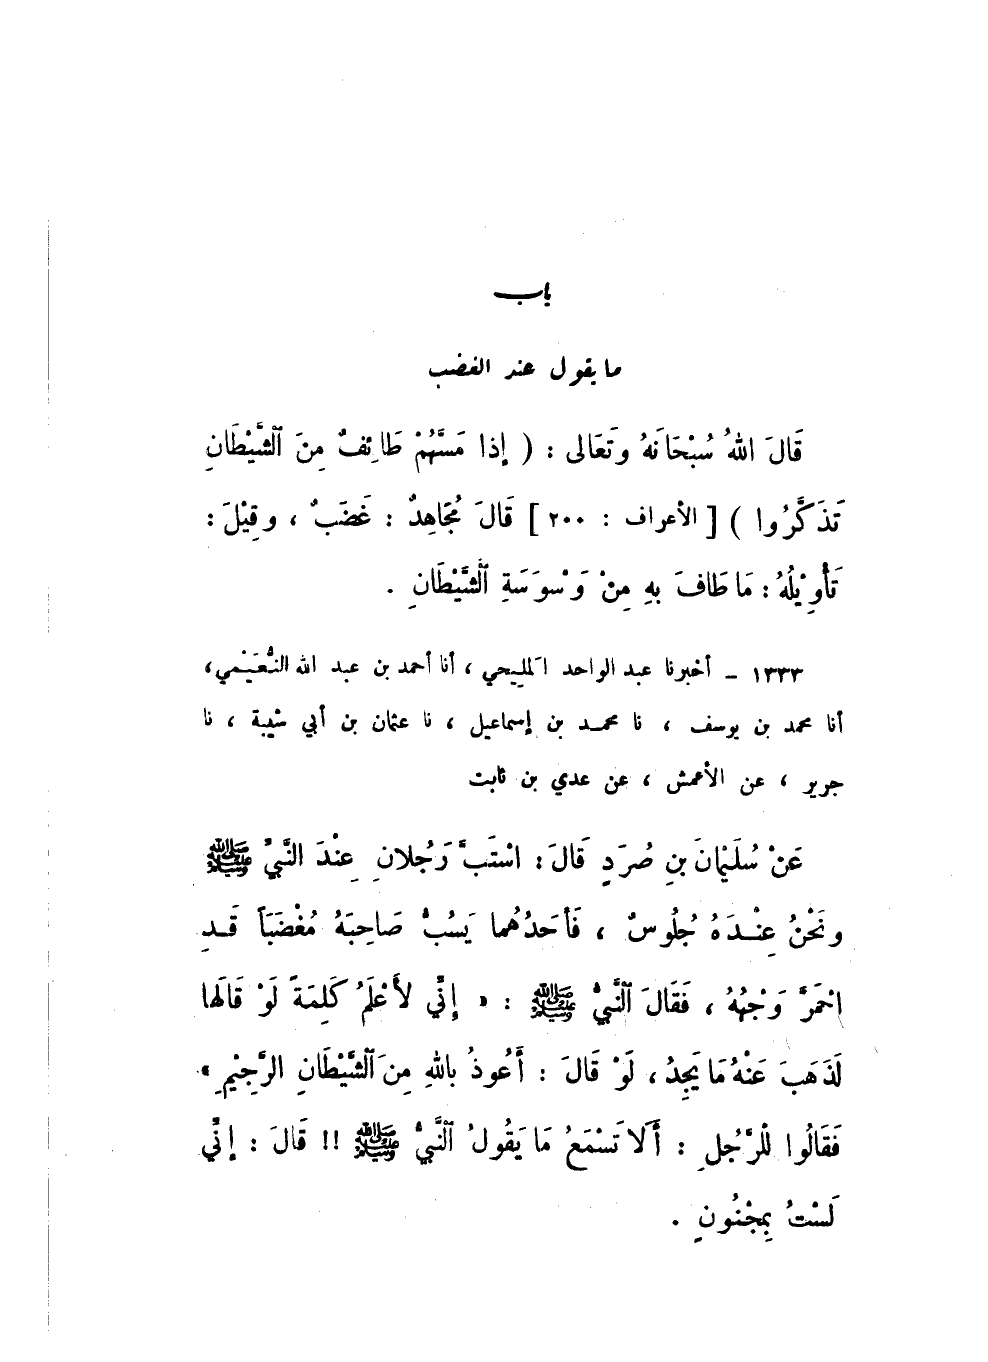 باب
ما يقول عند الغضب
قَالَ اللهُ سُبْحَانَهُ وتَعَالى : ( إذا مَسَّهُمْ طَائِفٌ مِنَ ٱلشَّيْطَانِ
تَذَكَّرُوا ) [ الأعراف : ٢٠٠ ] قَالَ مُجَاهِدٌ : غَضَبٌ ، وقِيْلَ :
تَأوِيْلُهُ : مَا طَافَ بهِ مِنْ وَسْوسَةِ ٱلشَّيْطَانِ .
١٣٣٣ - أخبرنا عبد الواحد المليحي ، أنا أحمد بن عبد الله النُّعَيْمي ،
أنا محمد بن يوسف ، نا محمد بن إسماعيل ، نا عثمان بن أبي شيبة ، نا
جرير ، عن الأعمش ، عن عدي بن ثابت
عَنْ سُلَيْمَانَ بنِ صُرَدٍ قَالَ : اسْتَبَّ رَجُلانِ عِنْدَ النَّبيِّ ﷺ
ونَحْنُ عِنْدَهُ جُلُوسٌ ، فَأحَدُهُما يَسُبُّ صَاحِبَهُ مُغْضَبَاً قَدِ
احْمَرَّ وَجْهُهُ ، فَقَالَ ٱلنَّبيُّ ﷺ : « إنِّي لأَعْلَمُ كَلِمَةً لَوْ قَالَها
لَذَهَبَ عَنْهُ مَا يَجِدُ ، لَوْ قَالَ : أَعُوذُ باللهِ مِنَ ٱلشَّيْطَانِ الرَّجِيْمِ »
فَقَالُوا لِلْرَّجُلِ : أَلا تَسْمَعُ مَا يَقُولُ ٱلنَّبيُّ ﷺ !! قَالَ : إنِّي
لَسْتُ بِمِجْنُونٍ .